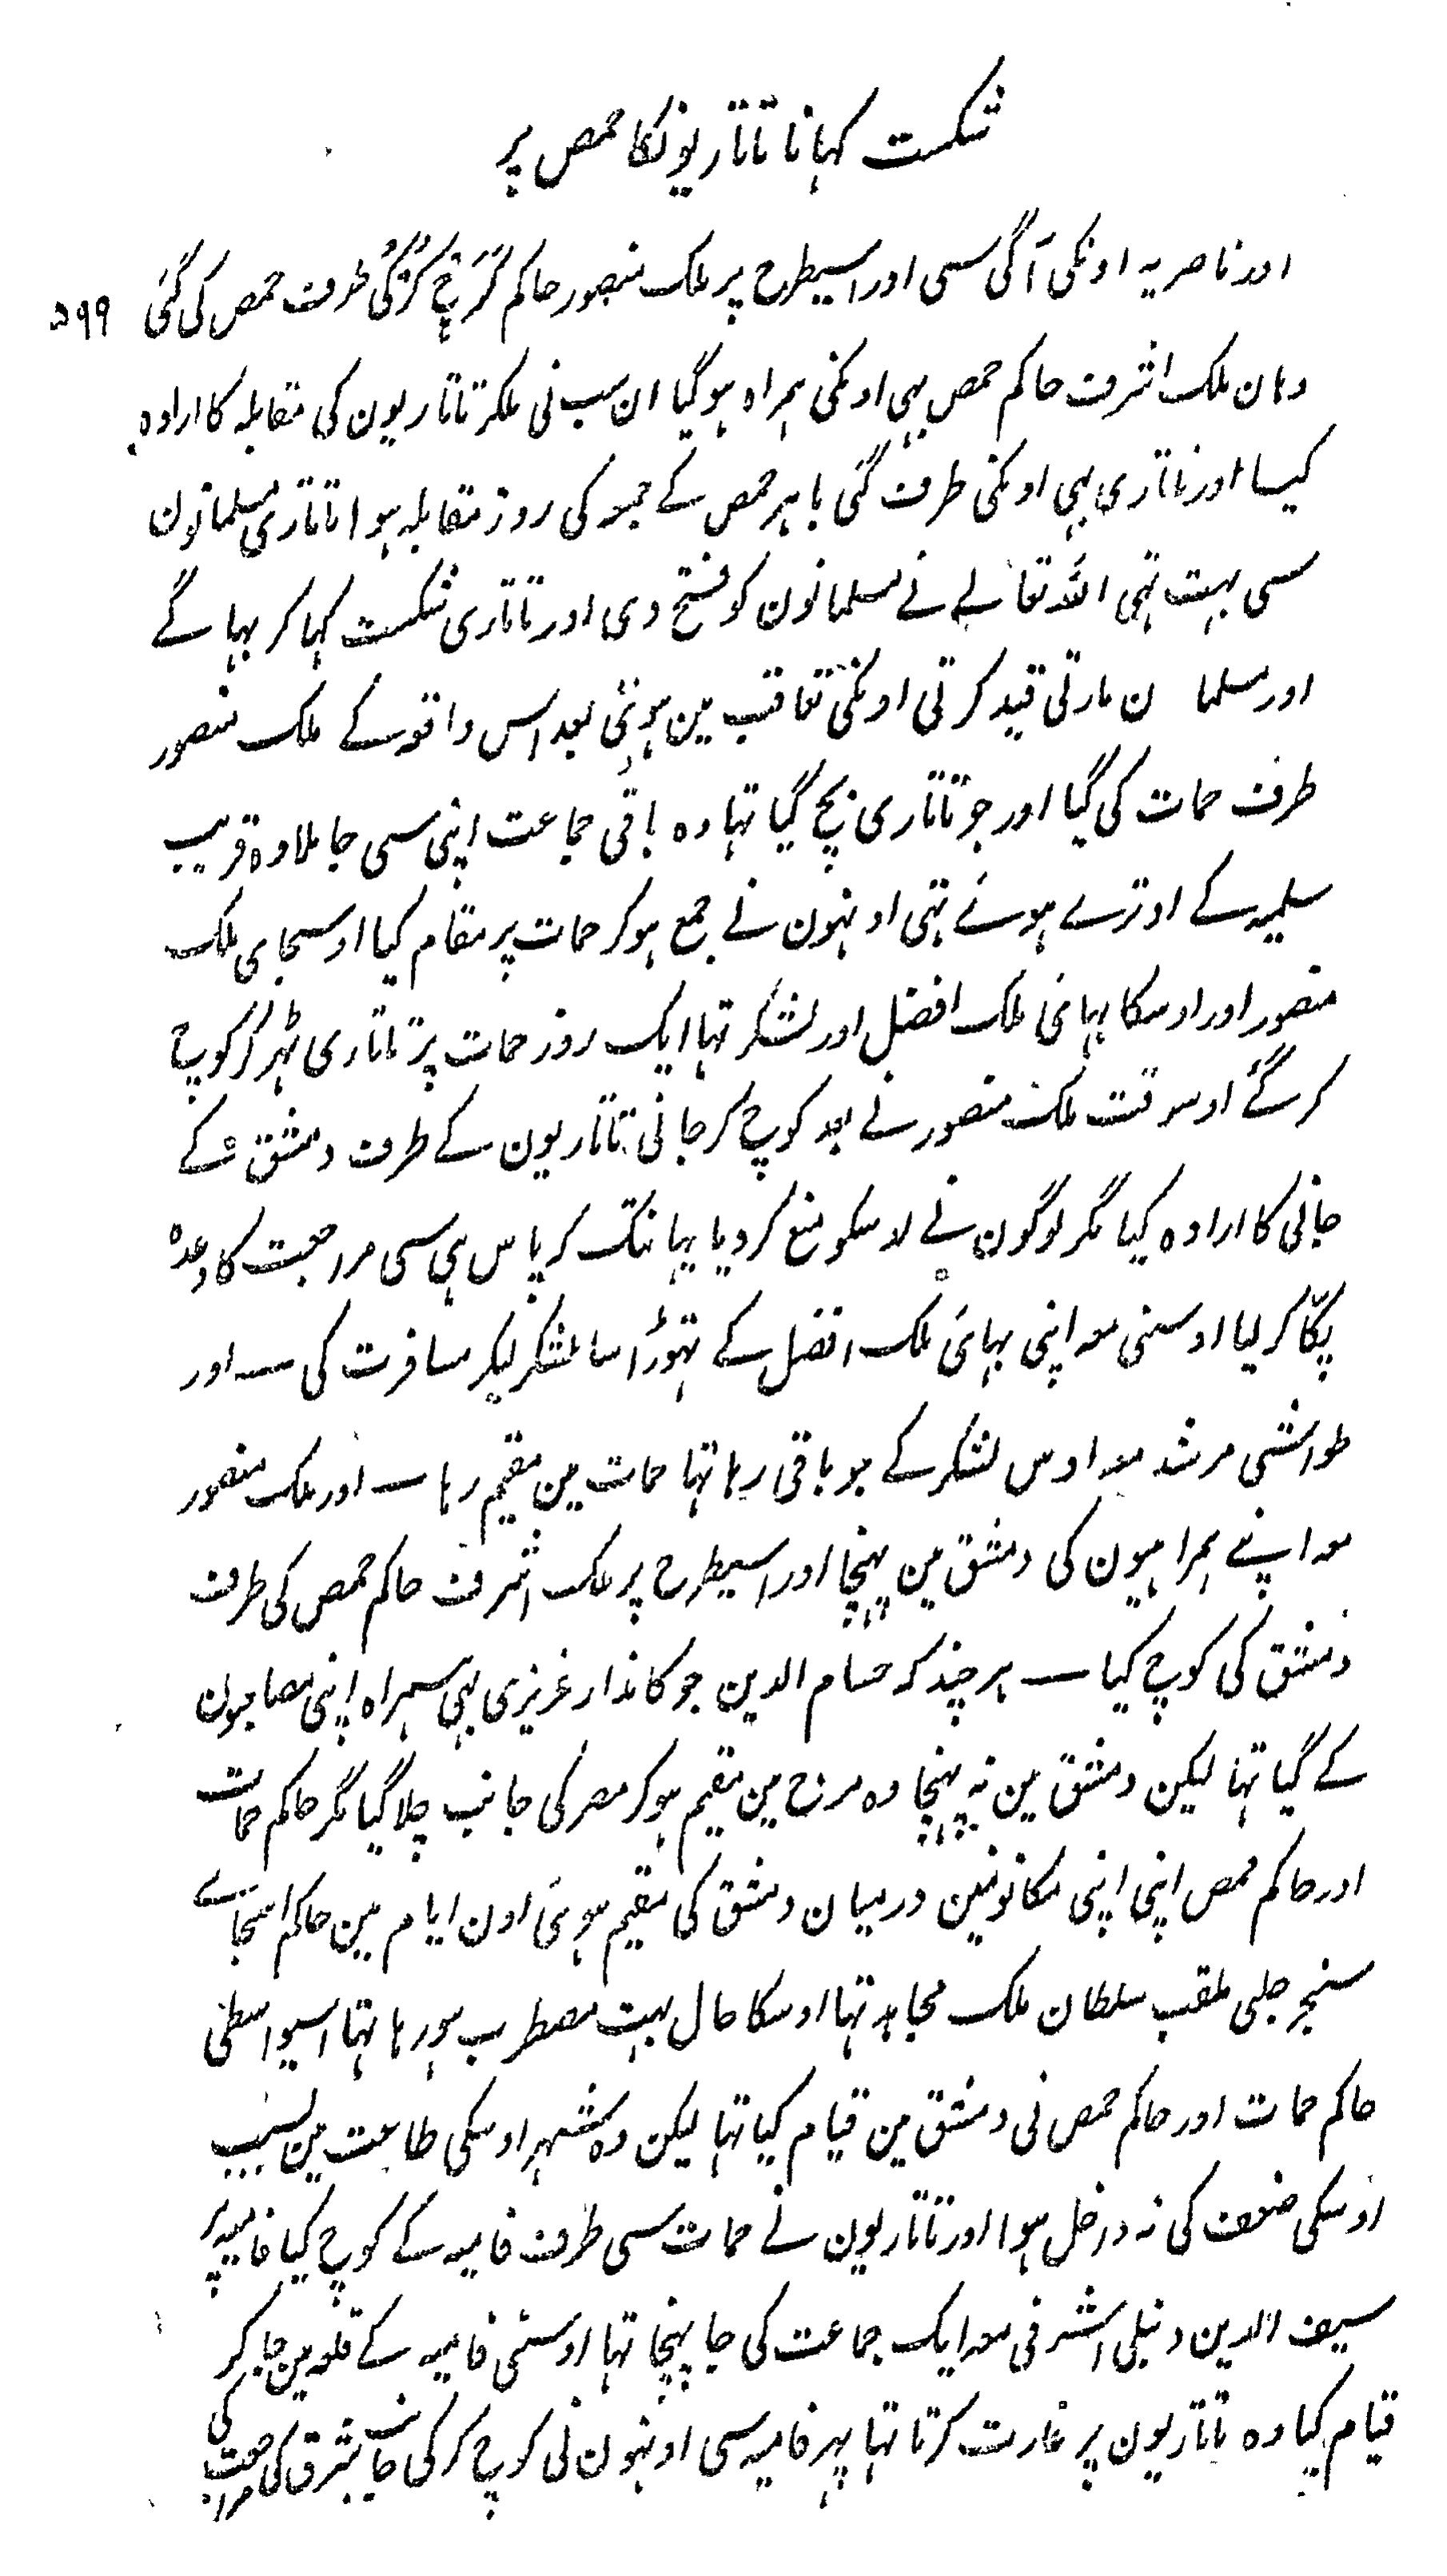 شکست کہانا تاتاریونکا حمص پر
اور ناصریہ اونکی آگی سی اور اسیطرح پر ملک منصور حاکم کَرَچْ کُرْکُی طرف حمص کی گئی ۵۹۹
وہان ملک اشرف حاکم حمص بہی اونکی ہمراہ ہو گیا ان سب نی ملکر تاتاریون کی مقابلہ کا ارادہ
کیا اور تاتاری بہی اونکی طرف گئی باہر حمص کے جمعہ کی روز مقابلہ ہوا تاتاری مسلمانون
سی بہت تہی اللہ تعالے نے مسلمانون کو فتح دی اور تاتاری شکست کہا کر بہاگے
اور مسلما ن مارتی قید کرتی اونکی تعاقب مین ہوئی بعد اس واقعہ کے ملک منصور
طرف حمات کی گیا اور جو تاتاری بچ گیا تہا وہ باقی جماعت اپنی سی جا ملا وہ قریب
سلمیہ کے اوترے ہوئے تہی اونہون نے جمع ہو کر حمات پر مقام کیا اوسجای ملک
منصور اور اوسکا بہائی ملک افضل اور لشکر تہا ایک روز حمات پر تاتاری ٹہر کر کوچ
کر گئے اوسوقت ملک منصور نے بعد کوچ کر جانی تاتاریون کے طرف دمشق کے
جانی کا ارادہ کیا مگر لوگون نے اوسکو منع کر دیا یہانتک کر پاس ہی سی مراجعت کا وعدہ
پکّا کر لیا اوسنی معہ اپنی بہائی ملک افضل کے تہوڑا سا لشکر لیکر مسافرت کی ــ اور
طواشی مرشد معہ اوس لشکر کے جو باقی رہا تہا حمات مین مقیم رہا ــ اور ملک منصور
معہ اپنے ہمراہیون کی دمشق مین پہنچا اور اسیطرح پر ملک اشرف حاکم حمص کی طرف
دمشق کی کوچ کیا ــ ہر چند کہ حسام الدین جوکاندار عزیزی بہی ہمراہ اپنی مصاحبون
کے گیا تہا لیکن دمشق مین نہ پہنچا وہ مرج مین مقیم ہو کر مصر کی جانب چلا گیا مگر حاکم حمات
اور حاکم حمص اپنی اپنی مکانونمین درمیان دمشق کی مقیم ہوئی اون ایام مین حاکم اسجاے
سنجر حلبی ملقب سلطان ملک مجاہد تہا اوسکا حال بہت مضطرب ہو رہا تہا اسیواسطی
حاکم حمات اور حاکم حمص نی دمشق مین قیام کیا تہا لیکن وہ شہر اوسکی طاعت مین بسبب
اوسکی ضعف کی نہ داخل ہوا اور تاتاریون نے حمات سی طرف فامیہ کے کوچ کیا فامیہ پر
سیف الدین دنبلی اشرفی معہ ایک جماعت کی جا پہنچا تہا اوسنی فامیہ کے قلعہ مین جا کر
قیام کیا وہ تاتاریون پر غارت کرتا تہا پہر فامیہ سی اونہون نی کوچ کر کی جانب شرق کی مراجعت کی